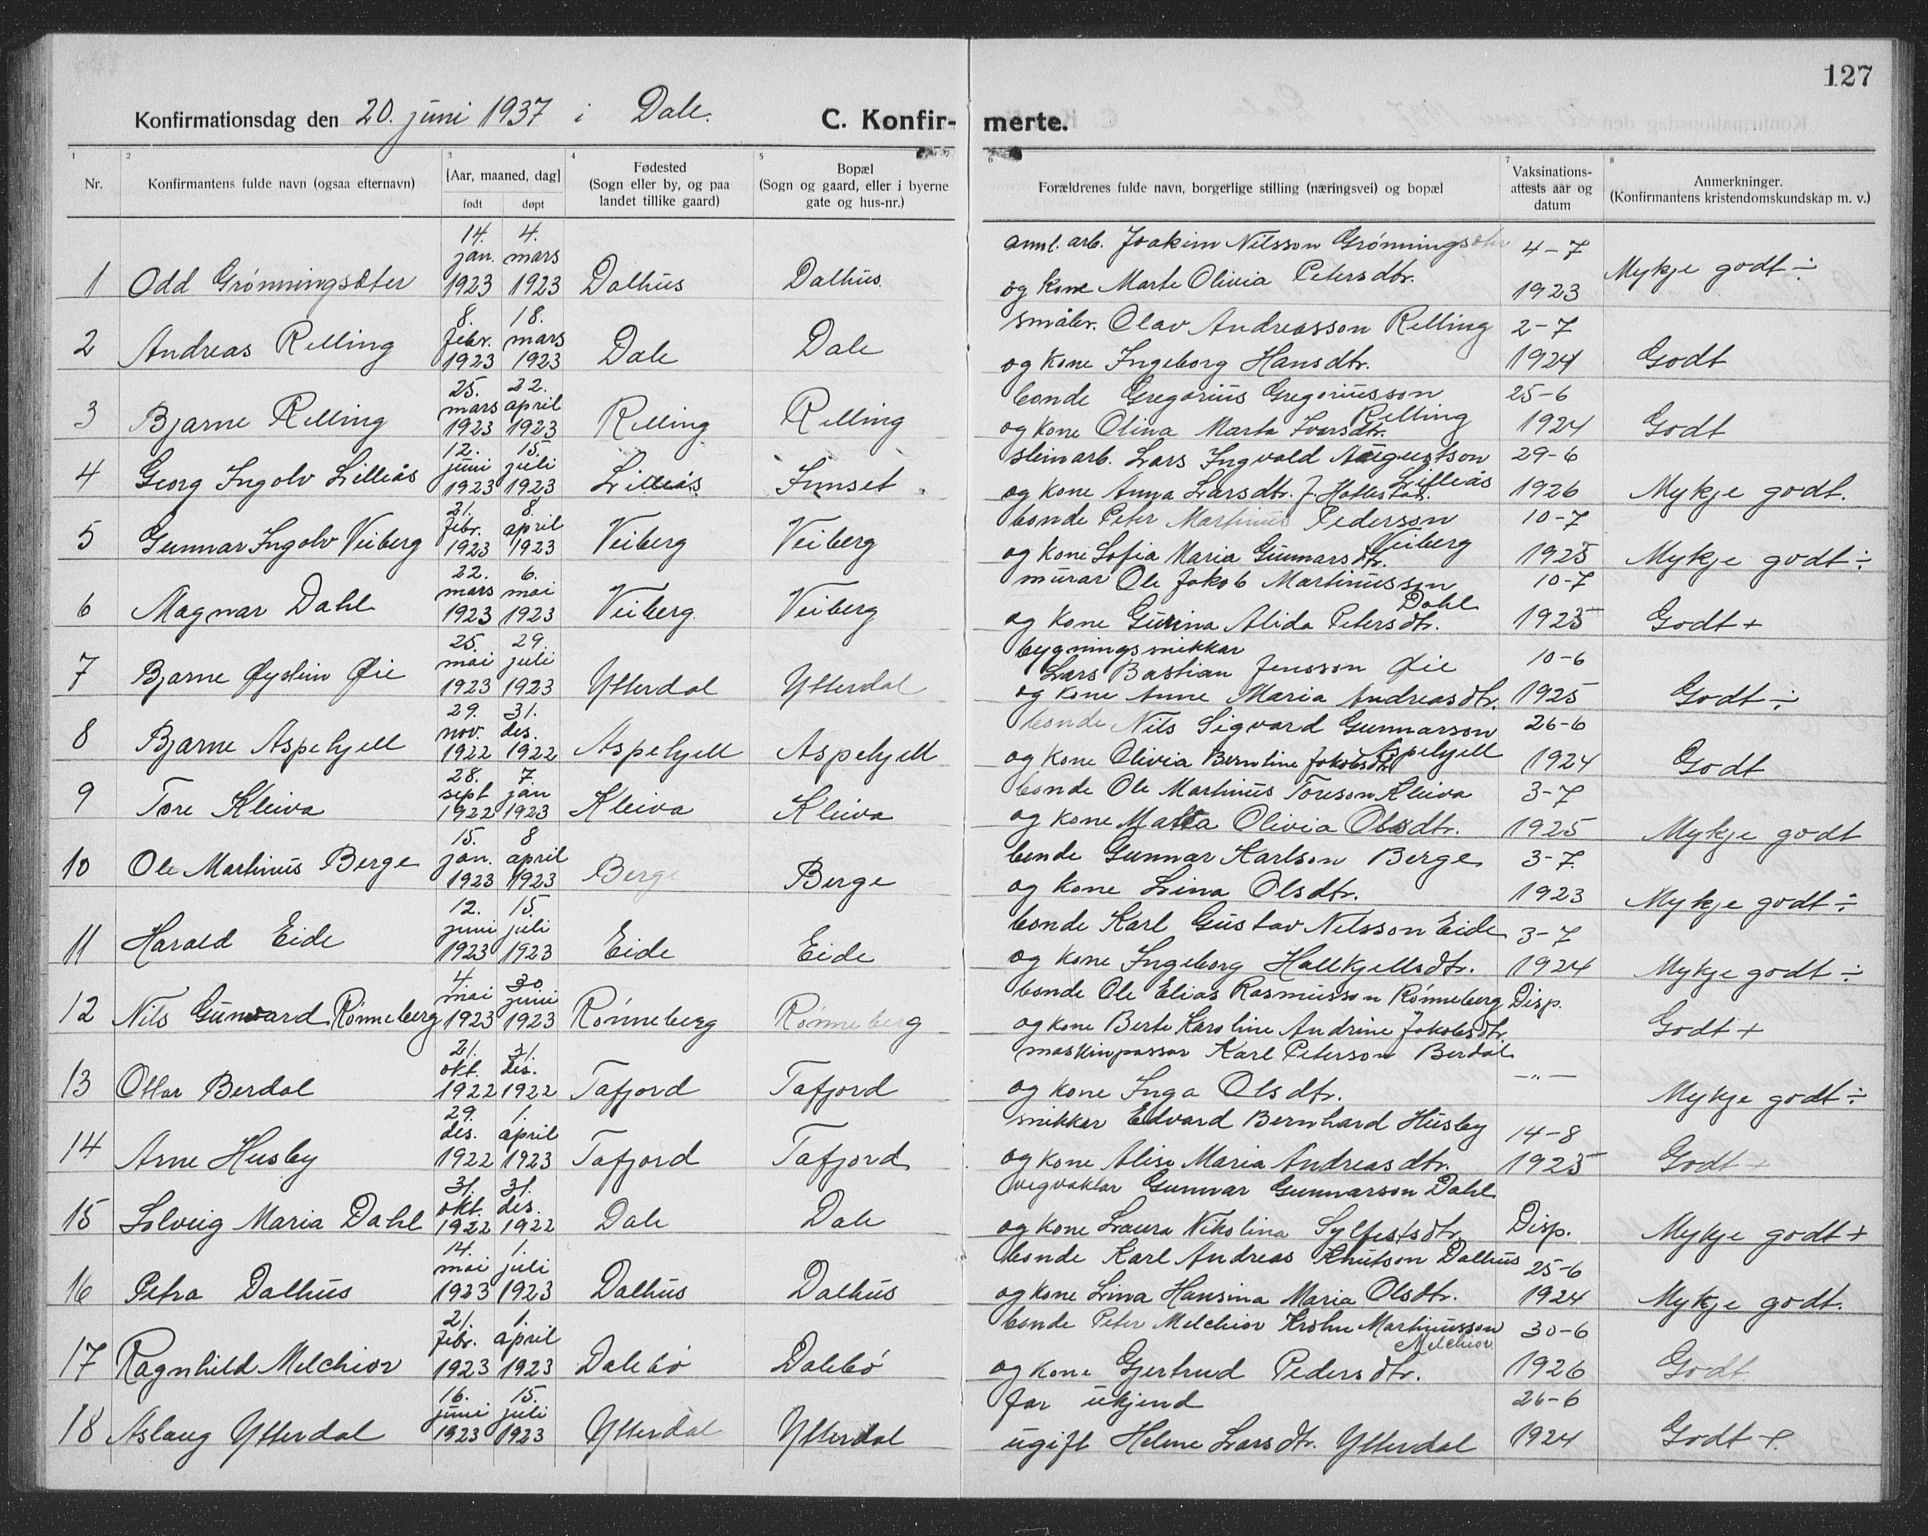 127
Konfirmationsdag den 20. juni 1937 i Dale. C. Konfir- merte.
1 2 3 4 5 6 7 8
Nr. Konfirmantens fulde navn (ogsaa efternavn) [Aar, maaned, dag] født døpt Fødested (Sogn eller by, og paa landet tillike gaard) Bopæl (Sogn og gaard, eller i byerne gate og hus-nr.) Forældrenes fulde navn, borgerlige stilling (næringsvei) og bopæl Vaksinations-attests aar og datum Anmerkninger. (Konfirmantens kristendomskundskap m. v.)
1 Odd Grønningsæter 14. jan. 1923 4. mars 1923 Dalhus Dalhus anl. arb. Joakim Nilsson Grønningsæter
og kone Marte Olivia Petersdtr. 4-7 1923 Mykje godt ÷
2 Andreas Relling 8. febr. 1923 18. mars 1923 Dale Dale småbr. Olav Andreasson Relling
og kone Ingeborg Hansdtr. 2-7 1924 Godt
3 Bjarne Relling 25. mars 1923 22. april 1923 Relling Relling bonde Gregorius Gregoriusson Relling
og kone Olina Marta Ivarsdtr. 25-6 1924 Godt
4 Georg Ingolv Lilleås 12. juni 1923 15. juli 1923 Lilleås Sunset steinarb. Lars Ingvald Augustson Lilleås
og kone Anna Larsdtr. f. 29-6 1926 Mykje godt.
5 Gunnar Ingolv Veiberg 21. febr. 1923 8. april 1923 Veiberg Veiberg bonde Peter Martinus Pederson Veiberg
og kone Sofia Maria Gunnarsdtr. 10-7 1925 Mykje godt ÷
6 Magnar Dahl 22. mars 1923 6. mai 1923 Veiberg Veiberg murar Ole Jakob Martinusson Dahl
og kone Gurina Alida Petersdtr. 10-7 1925 Godt +
7 Bjarne Øystein Øie 25. mai 1923 29. juli 1923 Ytterdal Ytterdal bygningssnikkar
Lars Bastian Jensson Øie
og kone Anne Maria Andreasdtr. 10-6 1925 Godt ÷
8 Bjarne Aspehjell 29. nov. 1922 31. des. 1922 Aspehjell Aspehjell bonde Nils Sigvard Gunnarson Aspehjell
og kone Olivia Berntine Jakobsdtr. 26-6 1924 Godt
9 Tore Kleiva 28. sept 1922 7. jan 1923 Kleiva Kleiva bonde Ole Martinus Toreson Kleiva
og kone Marta Olivia Olsdtr. 3-7 1925 Mykje godt
10 Ole Martinus Berge 15. jan. 1923 8 april 1923 Berge Berge bonde Gunnar Karlson Berge
og kone Lina Olsdtr. 3-7. 1923 Mykje godt ÷
11 Harald Eide 12. juni 1923 15. juli 1923 Eide Eide bonde Karl Gustav Nilsson Eide
og kone Ingeborg Hallkjellsdtr. 3-7 1924 Mykje godt ÷
12 Nils Gunvard Rønneberg 4. mai 1923 30 juni 1923 Rønneberg Rønneberg bonde Ole Elias Rasmusson Rønneberg
og kone Berte Karoline Andrine Jakobsdtr. Disp. Godt +
13 Ottar Berdal 21. okt. 1922 31. des. 1922 Tafjord Tafjord maskinpassar Karl Peterson Berdal
og kone Inga Olsdtr. —"— Mykje godt ÷
14 Arne Husby 29. des. 1922 1. april 1923 Tafjord Tafjord snikkar Edvard Bernhard Husby
og kone Alise Maria Andreasdtr. 14-8 1925 Godt +
15 Solveig Maria Dahl 31. okt. 1922 31. des. 1922 Dale Dale vegvaktar Gunnar Gunnarson Dahl
og kone Laura Nikolina Sylfestsdtr. Disp. Mykje godt +
16 Petra Dalhus 14. mai 1923 1. juli 1923 Dalhus Dalhus bonde Karl Andreas Knutson Dalhus
og kone Lina Hansina Maria Olsdtr. 25-6 1924 Mykje godt.
17 Ragnhild Melchior 21. febr. 1923 1. april 1923 Dalebø Dalebø bonde Peter Melchior Krohn Martinusson Melchior
og kone Gjertrud Pedersdtr. 30-6 1926 Godt
18 Aslaug Ytterdal 16. juni 1923 15. juli 1923 Ytterdal Ytterdal far ukjend
ugift Helene Larsdtr. Ytterdal 26-6 1924 Godt +.